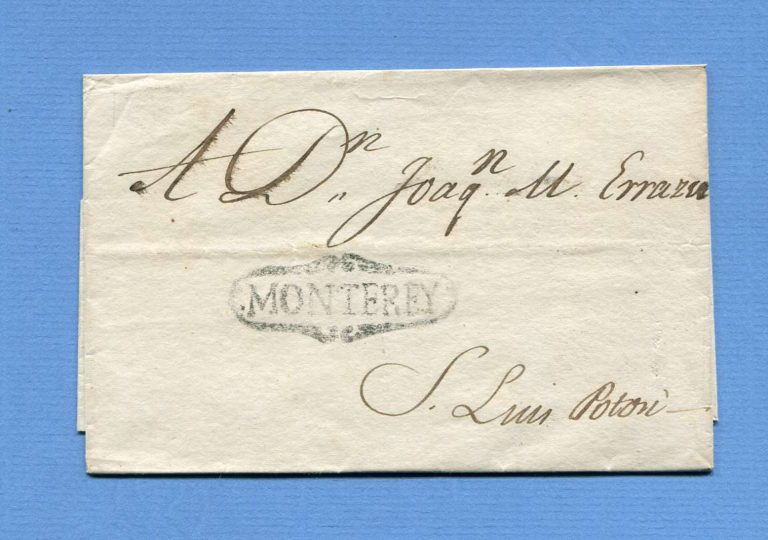 A Dn „ Joaqn. M. Errazu
MONTEREY
S. Luis Potosi